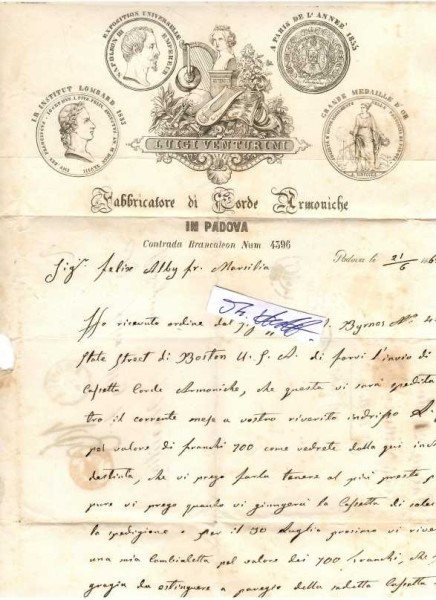 EXPOSITION UNIVERSELLE
NAPOLEON III EMPEREUR
A PARIS DE L'ANNÉE 1855
I.R. INSTITUT LOMBARD 1855
GRANDE MEDAILLE D'OR
LUIGI VENTURINI
Fabbricatore di Corde Armoniche
IN PADOVA
Contrada Brancaleon Num 4396
Padova li 21/6
Sigr. Felix Alby fr. Marsilia
Ho ricevuto ordine dal Byrnes No. 4
State Street di Boston U.S.A. di farvi l'invio di
Cassetta Corde Armoniche, che questa vi sarà spedita
tro il corrente mese a vostro riverito indirisso
pel valore di franchi 700 come vedrete dalla qui
distinta, che vi prego farla tenere al più presto
pure vi prego quando vi giungerà la Cassetta di
la spedizione e per il 30 Luglio prossimo vi
una mia Cambialetta pel valore dei 700 franchi, che
grazia da estinguere a pareggio della sudetta Cassetta